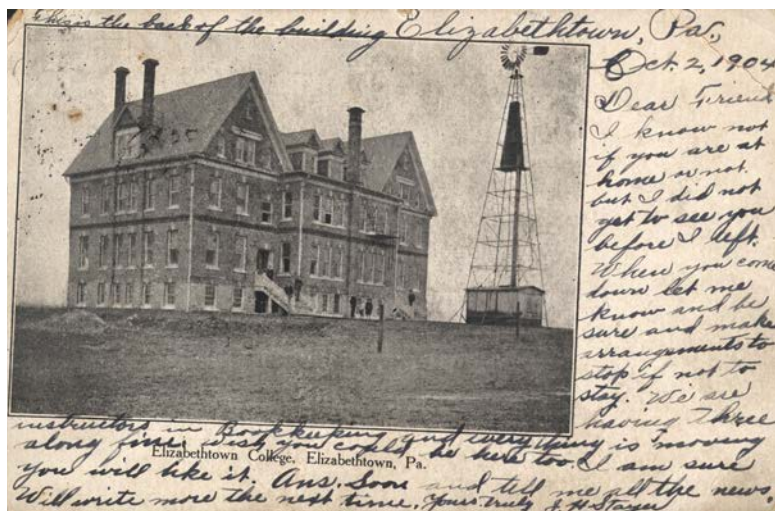 This is the back of the building Elizabethtown, Pa.,
Oct. 2, 1904
Dear Friend
I know not
if you are at
home or not.
but I did not
get to see you
before I left.
When you come
down let me
know and be
sure and make
arrangements to
stop if not to
stay. We are
having three
instructors in Bookkeeping and everything is moving
along fine. Wish you could be here too. I am sure
Elizabethtown College, Elizabethtown, Pa.
you will like it. Ans. Soon and tell me all the news.
Will write more the next time. Yours truly J. H. Stayer